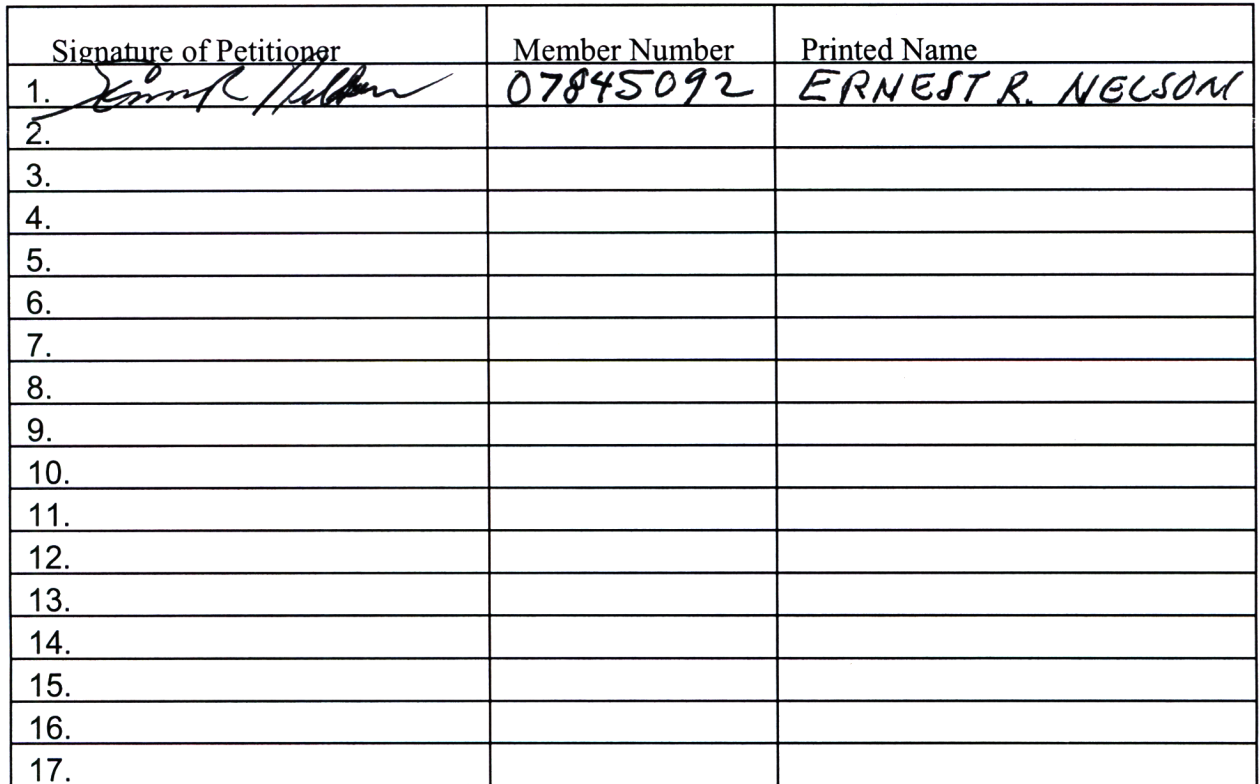 Signature of Petitioner Member Number Printed Name
1. 07845092 ERNEST R. NELSON
2.
3.
4.
5.
6.
7.
8.
9.
10.
11.
12.
13.
14.
15.
16.
17.